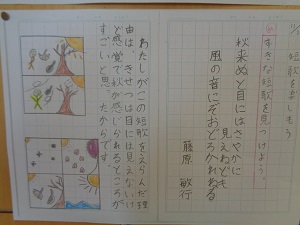 短歌を楽しもう
すきな短歌を見つけよう。
秋来ぬと目にはさやかに
見えねども
風の音にぞおどろかれぬる
藤原 敏行
わたしがこの短歌をえらんだ理
由は、きせつは目には見えないけ
ど感覚で秋が感じられるところが
すごいと思ったからです。